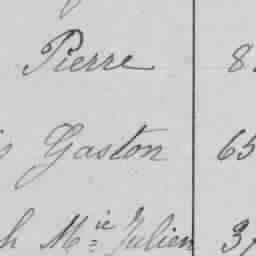 Pierre 8
s Gaston 65
h M.ie Julien 37